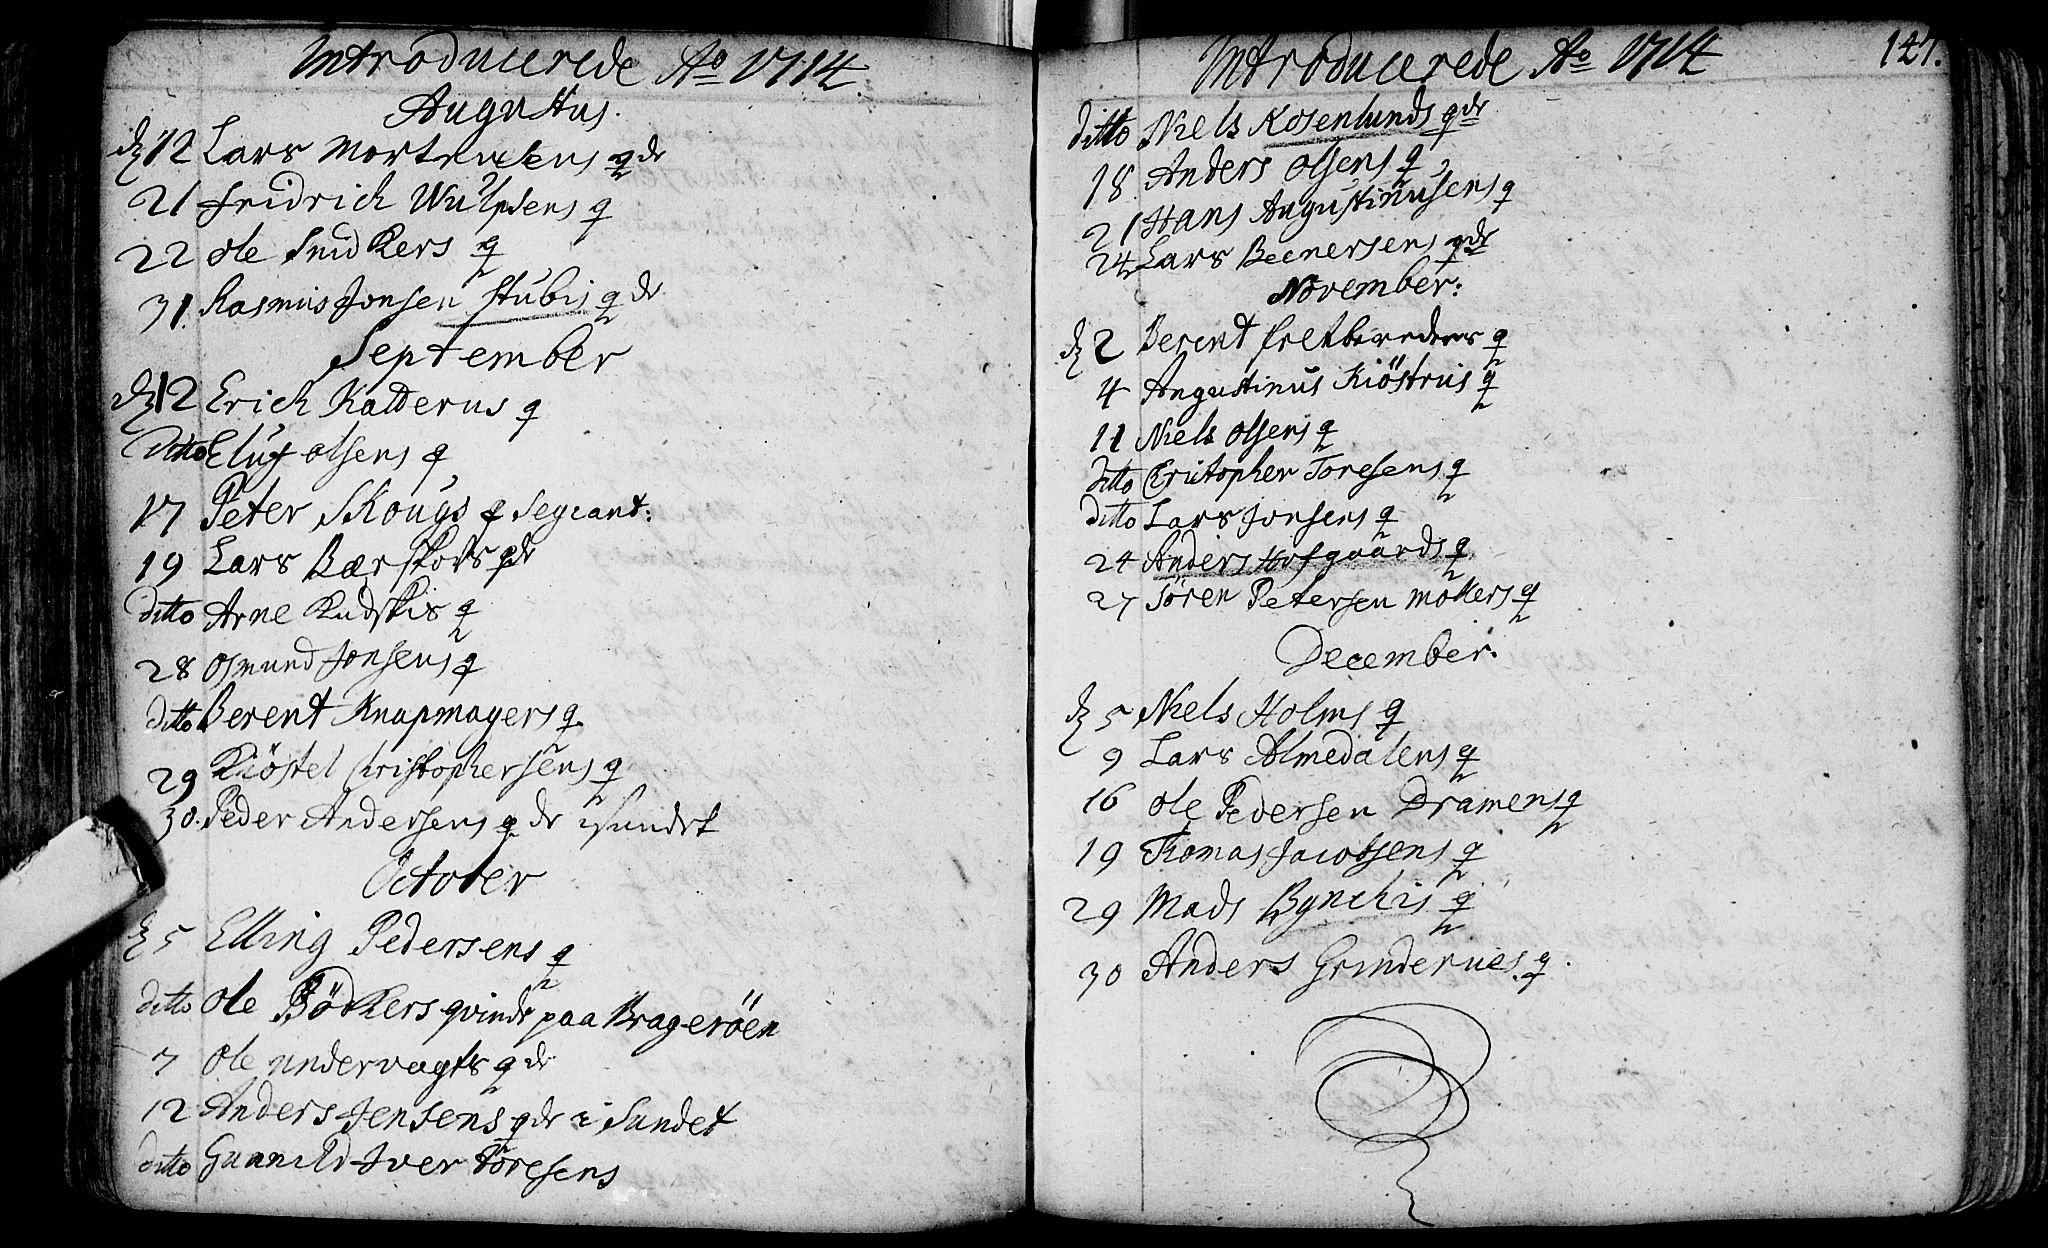 Introducerede Ao 1714.
Augustus.
dz 12 Lars Mortensens qde
21 Fridrich Wulpsens q
22 Ole Snidkers q
31. Rasmus Jonsen Stubis q de
September
dz 12 Erich Kalderus q
Ditto Eluf Olsens q
17 Peter Skougs q Segiant:
19 Lars Bærskots qde
ditto Arne Kudskis q
28 Osmund Jonsens q
ditto Berent Knapmagers q
29 Kiöstel Christophersens q
30. Peder Andersens q de i Sundet
October
dz 5 Elling Pedersens q
ditto Ole Bödkers qvinde paa Brageröen
7 Ole undervagts q de
12 Anders Jensens qde i Sundet
ditto Gunnild Iver Töresens
Introducerede Ao 1714
147.
ditto Niels Rosenlunds qde
18 Anders Olsens q
21 Hans Augustinusens q
24 Lars Beenersens qde
November:
dz 2 Berent q
4 Augustinus Kiöstrus q
11 Niels Olsens q
ditto Christopher Toresens q
ditto Lars Jonsens q
24 Anders Hofgaards q
27 Sören Petersen Möllers q
December.
dz 5 Niels Holms q
9 Lars Almedalens q
16 Ole Pedersen Dramens q
19 Thomas Jacobsens q
29 Mads Bynchis q
30 Anders Grinderues. q.